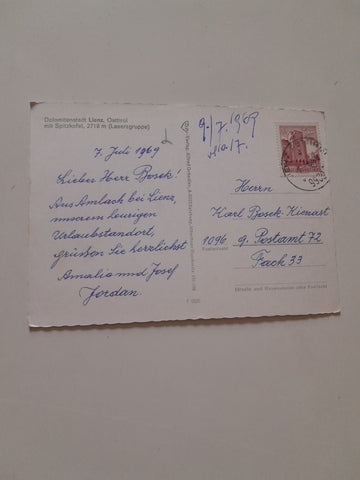 Dolomitenstadt Lienz, Osttirol
mit Spitzkofel, 2718 m (Laserzgruppe)
7. Juli 1969
Lieber Herr Bosek!
Aus Amlach bei Lienz,
unserem heurigen
Urlaubsstandort,
grüßen Sie herzlichst
Amalia und Josef
Jordan.
9./7. 1969
Herrn
Karl Bosek-Kienast
1096 g. Postamt 72
Postleitzahl
Fach 33